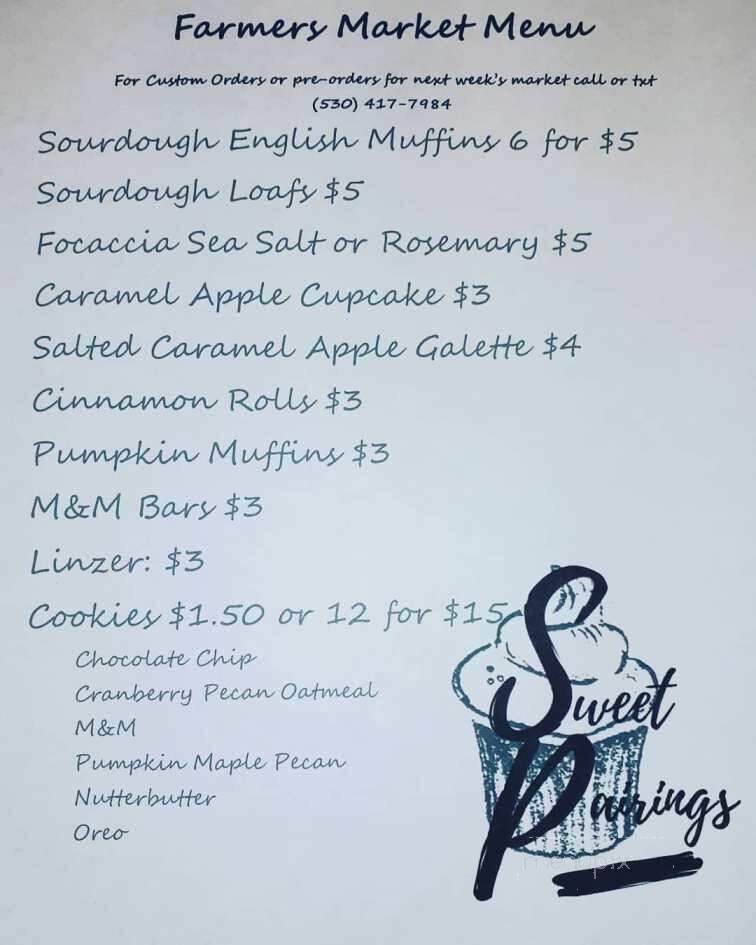 Farmers Market Menu
For Custom Orders or pre-orders for next week's market call or txt
(530) 417-7984
Sourdough English Muffins 6 for $5
Sourdough Loafs $5
Focaccia Sea Salt or Rosemary $5
Caramel Apple Cupcake $3
Salted Caramel Apple Galette $4
Cinnamon Rolls $3
Pumpkin Muffins $3
M&M Bars $3
Linzer: $3
Cookies $1.50 or 12 for $15
Chocolate Chip
Cranberry Pecan Oatmeal
M&M
Pumpkin Maple Pecan
Nutterbutter
Oreo
Sweet
Pairings
menupix